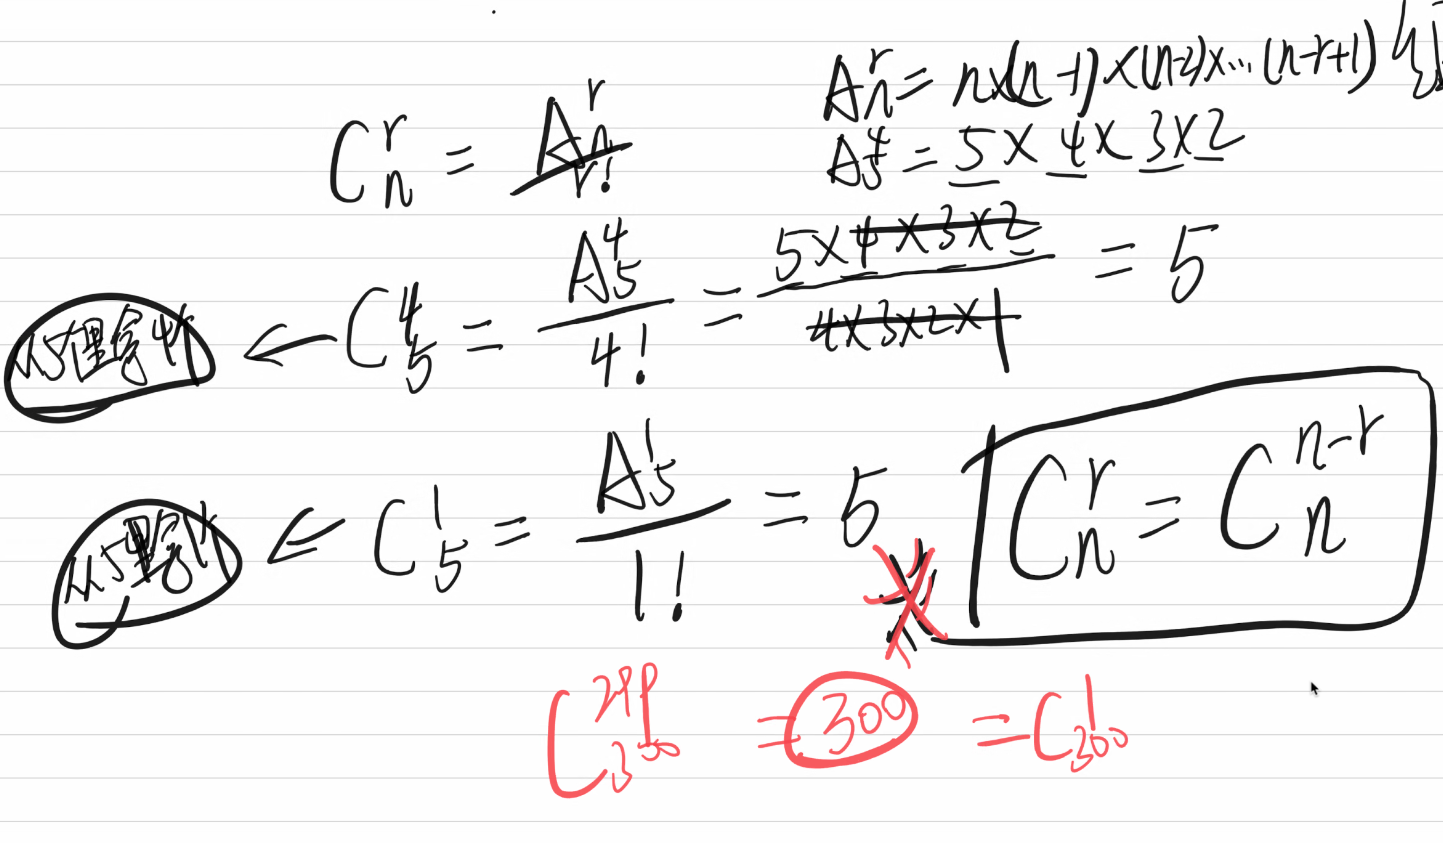 A_n^r = n×(n-1)×(n-2)×...(n-r+1)
C_n^r = A_n^r / r!
A_5^4 = 5×4×3×2
从5里拿4个 ← C_5^4 = A_5^4 / 4! = 5×4×3×2 / 4×3×2×1 = 5
从5里拿1个 ← C_5^1 = A_5^1 / 1! = 5
C_n^r = C_n^{n-r}
C_300^299 = 300 = C_300^1